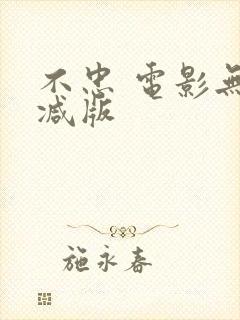 不忠 電影無
減版
施永春